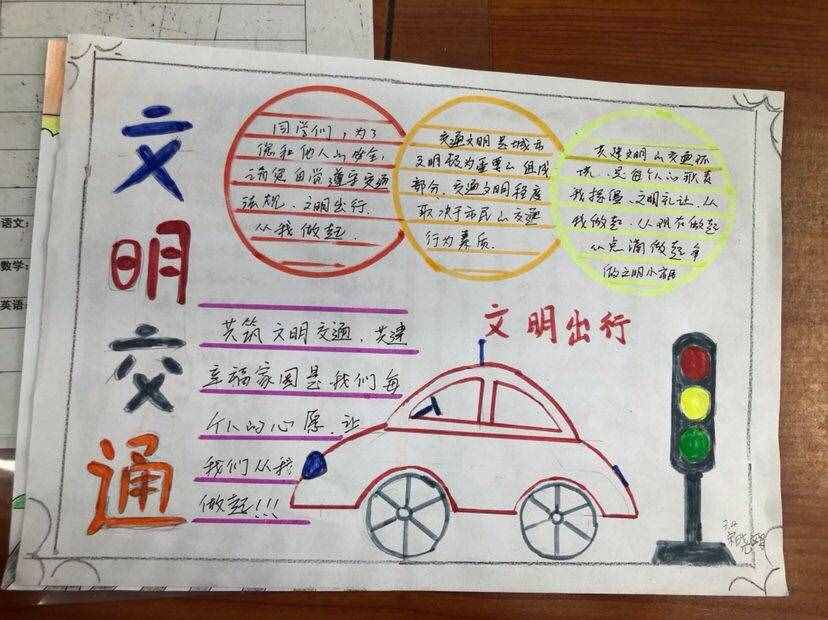 语文:
数学:
英语:
文明交通
同学们,为了
您和他人的安全,
请您自觉遵守交通
法规、文明出行.
从我做起.
交通文明是城市
文明极为重要的组成
部分.交通文明程度
取决于市民的交通
行为素质.
共建文明的交通环
境,是每个人的职责
我提倡.文明礼让.从
我做起.从现在做起
从点滴做起争
做文明小
共筑文明交通、共建
幸福家园是我们每
个人的心愿.让
我们从我
做起!!!
文明出行